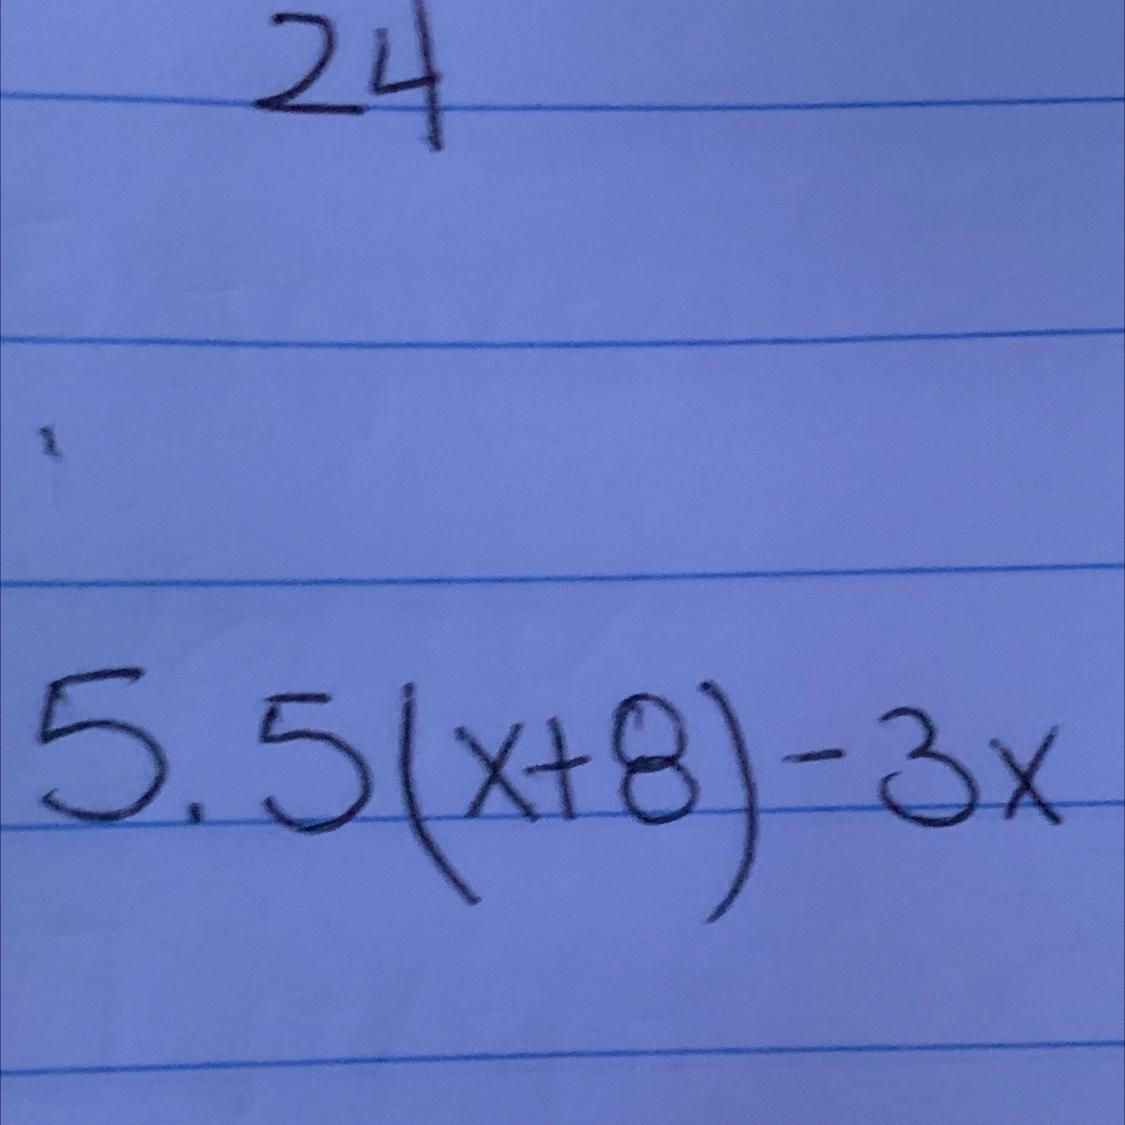 24
5. 5(x+8)-3x